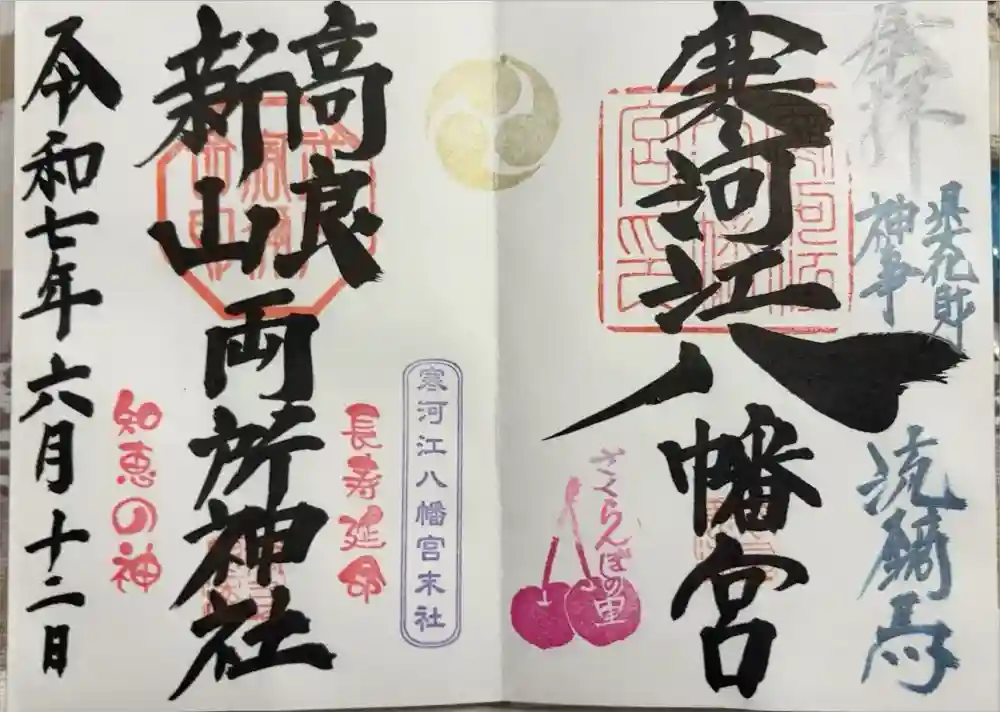 奉拝
神事
流鏑馬
寒河江八幡宮
さくらんぼの里
寒河江八幡宮末社
長寿延命
高良
新山
両所神社
知恵の神
令和七年六月十二日